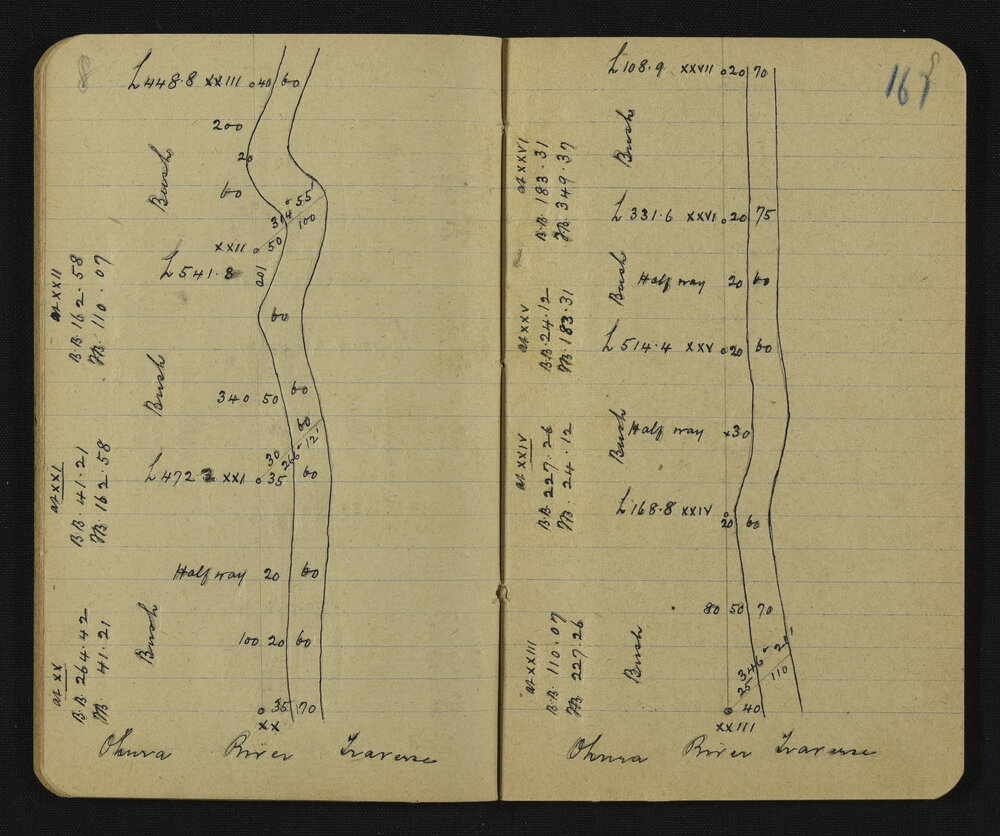 8
L 448.8 XXIII 040 60
200
20
Bush
60
314° 55'
100
XXII 50
L 541.8 100
at XXII
B.B. 162.58
M. 110.07
60
Bush
340 50 60
60
30 266° 12'
L 472.2 XXI 35 60
at XXI
B.B. 41.21
M. 162.58
Half way 20 60
Bush
100 20 60
at XX
B.B. 264.42
M. 41.21
35 70
XX
Ohura River Traverse
167
L 108.9 XXVII 20 70
Bush
at XXVI
B.B. 183.31
M. 349.37
L 331.6 XXVI 20 75
Bush
Half way 20 60
at XXV
B.B. 24.12
M. 183.31
L 514.4 XXV 20 60
Bush
Half way 30
at XXIV
B.B. 227.26
M. 24.12
L 168.8 XXIV
20 60
80 50 70
Bush
at XXIII
B.B. 110.07
M. 227.26
25 110
40
XXIII
Ohura River Traverse